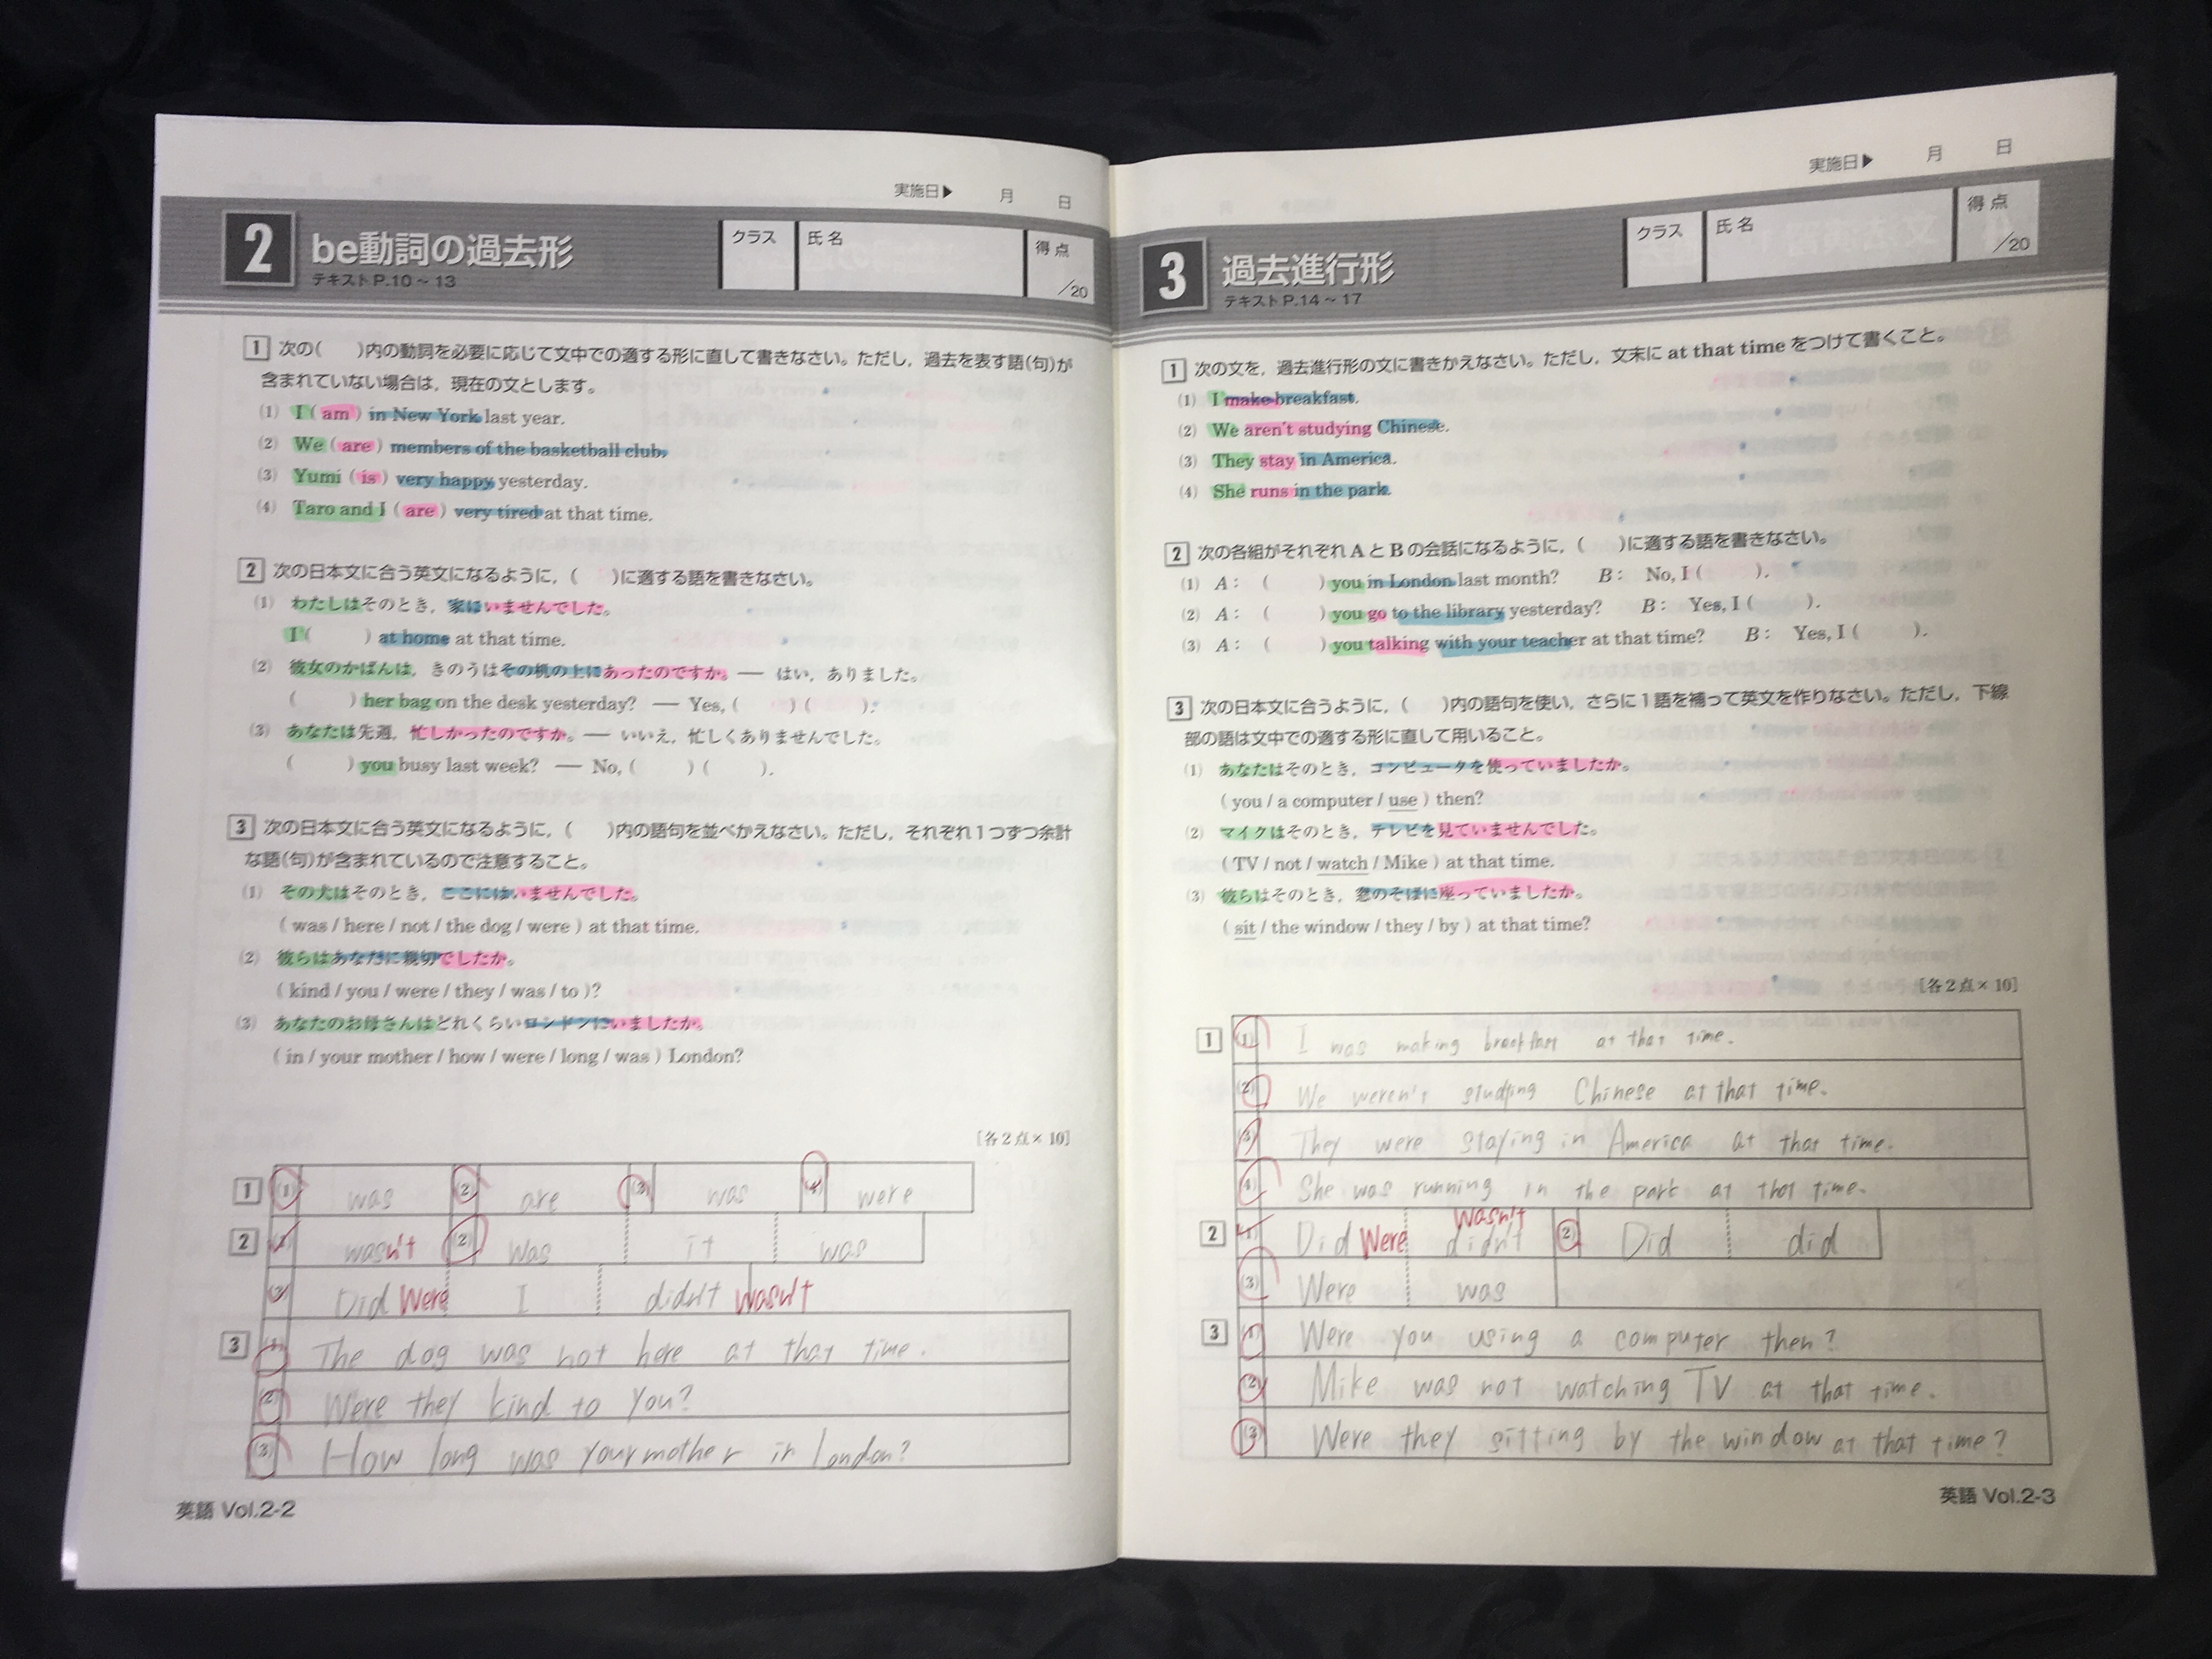 実施日▶ 月 日
2 be動詞の過去形
テキストP.10～13
クラス 氏名 得点 ／20
1 次の( )内の動詞を必要に応じて文中での適する形に直して書きなさい。ただし，過去を表す語(句)が
含まれていない場合は，現在の文とします。
(1) I ( am ) in New York last year.
(2) We ( are ) members of the basketball club.
(3) Yumi ( is ) very happy yesterday.
(4) Taro and I ( are ) very tired at that time.
2 次の日本文に合う英文になるように，( )に適する語を書きなさい。
(1) わたしはそのとき，家にいませんでした。
I ( ) at home at that time.
(2) 彼女のかばんは，きのうはその机の上にあったのですか。― はい，ありました。
( ) her bag on the desk yesterday? ― Yes, ( ) ( ).
(3) あなたは先週，忙しかったのですか。― いいえ，忙しくありませんでした。
( ) you busy last week? ― No, ( ) ( ).
3 次の日本文に合う英文になるように，( )内の語句を並べかえなさい。ただし，それぞれ1つずつ余計
な語(句)が含まれているので注意すること。
(1) その犬はそのとき，ここにはいませんでした。
( was / here / not / the dog / were ) at that time.
(2) 彼らはあなたに親切でしたか。
( kind / you / were / they / was / to )?
(3) あなたのお母さんはどれくらいロンドンにいましたか。
( in / your mother / how / were / long / was ) London?
[各2点×10]
1 (1) was (2) are (3) was (4) were
2 (1) wasn't (2) Was it was
(3) Did Were I didn't wasn't
3 (1) The dog was not here at that time.
(2) Were they kind to you?
(3) How long was your mother in London?
英語 Vol.2-2
実施日▶ 月 日
3 過去進行形
テキストP.14～17
クラス 氏名 得点 ／20
1 次の文を，過去進行形の文に書きかえなさい。ただし，文末に at that time をつけて書くこと。
(1) I make breakfast.
(2) We aren't studying Chinese.
(3) They stay in America.
(4) She runs in the park.
2 次の各組がそれぞれAとBの会話になるように，( )に適する語を書きなさい。
(1) A: ( ) you in London last month? B: No, I ( ).
(2) A: ( ) you go to the library yesterday? B: Yes, I ( ).
(3) A: ( ) you talking with your teacher at that time? B: Yes, I ( ).
3 次の日本文に合うように，( )内の語句を使い，さらに1語を補って英文を作りなさい。ただし，下線
部の語は文中での適する形に直して用いること。
(1) あなたはそのとき，コンピュータを使っていましたか。
( you / a computer / use ) then?
(2) マイクはそのとき，テレビを見ていませんでした。
( TV / not / watch / Mike ) at that time.
(3) 彼らはそのとき，窓のそばに座っていましたか。
( sit / the window / they / by ) at that time?
[各2点×10]
1 (1) I was making breakfast at that time.
(2) We weren't studying Chinese at that time.
(3) They were staying in America at that time.
(4) She was running in the park at that time.
2 (1) Did Were didn't Wasn't (2) Did did
(3) Were was
3 (1) Were you using a computer then?
(2) Mike was not watching TV at that time.
(3) Were they sitting by the window at that time?
英語 Vol.2-3